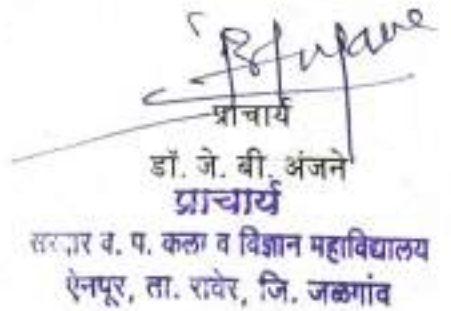 प्राचार्य
डॉ. जे. बी. अंजने
प्राचार्य
सरदार व. प. कला व विज्ञान महाविद्यालय
ऐनपूर, ता. रावेर, जि. जळगांव